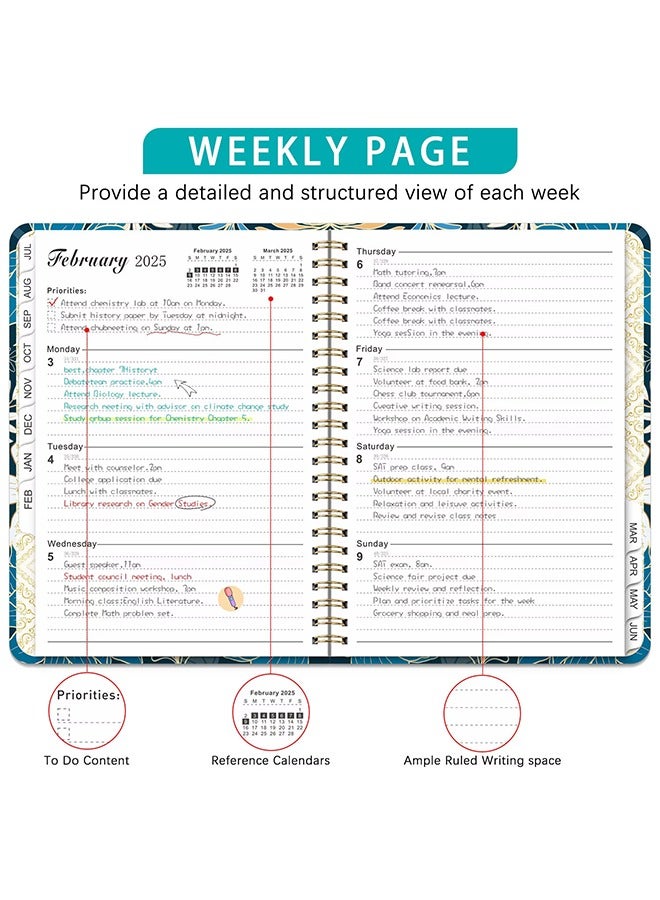 WEEKLY PAGE
Provide a detailed and structured view of each week
February 2025
February 2025
S M T W T F S
1
2 3 4 5 6 7 8
9 10 11 12 13 14 15
16 17 18 19 20 21 22
23 24 25 26 27 28
March 2025
S M T W T F S
1
2 3 4 5 6 7 8
9 10 11 12 13 14 15
16 17 18 19 20 21 22
23 24 25 26 27 28 29
30 31
Priorities:
Attend chemistry lab at 10am on Monday.
Submit history paper by Tuesday at midnight.
Attend clubmeeting on Sunday at 1pm.
Monday
3
best,chapter 7History
Debateteam practice,4pm
Attend Biology lecture.
Research meeting with advisor on climate change study
Study group session for Chemistry Chapter 5.
Tuesday
4
Meet with counselor,2pm
College application due
Lunch with classmates.
Library research on Gender Studies
Wednesday
5
Guest speaker,11am
Student council meeting, lunch
Music composition workshop, 3pm
Morning class:English Literature.
Complete Math problem set.
Thursday
6
Math tutoring,7pm
Band concert rehearsal,6pm
Attend Economics lecture.
Coffee break with classmates.
Coffee break with classmates.
Yoga session in the evening.
Friday
7
Science lab report due
Volunteer at food bank, 2pm
Chess club tournament,6pm
Creative writing session.
Workshop on Academic Writing Skills.
Yoga session in the evening.
Saturday
8
SAT prep class, 9am
Outdoor activity for mental refreshment.
Volunteer at local charity event.
Relaxation and leisure activities.
Review and revise class notes
Sunday
9
SAT exam, 8am.
Science fair project due
Weekly review and reflection.
Plan and prioritize tasks for the week
Grocery shopping and meal prep.
JUL
AUG
SEP
OCT
NOV
DEC
JAN
FEB
MAR
APR
MAY
JUN
Priorities:
February 2025
S M T W T F S
1
2 3 4 5 6 7 8
9 10 11 12 13 14 15
16 17 18 19 20 21 22
23 24 25 26 27 28
To Do Content
Reference Calendars
Ample Ruled Writing space